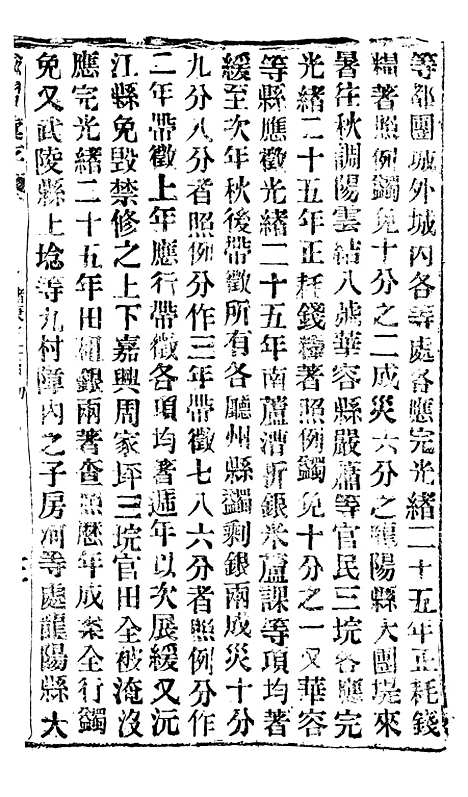 等都團城外城內各等處各應完光緒二十五年正耗錢
糧著照例蠲免十分之二成災六分之龍陽縣大團堤來
暑往秋調陽雲結八號華容縣嚴蕭等官民三垸各應完
光緒二十五年正耗錢糧著照例蠲免十分之一又華容
等縣應徵光緒二十五年南蘆漕折銀米蘆課等項均著
緩至次年秋後帶徵所有各廳州縣蠲剩銀兩成災十分
九分八分者照例分作三年帶徵七八六分者照例分作
二年帶徵上年應行帶徵各項均著遞年以次展緩又沅
江縣免毀禁修之上下嘉興周家坪三垸官田全被淹沒
應完光緒二十五年田租銀兩著查照歷年成案全行蠲
免又武陵縣上埝等九村障內之子房河等處龍陽縣大